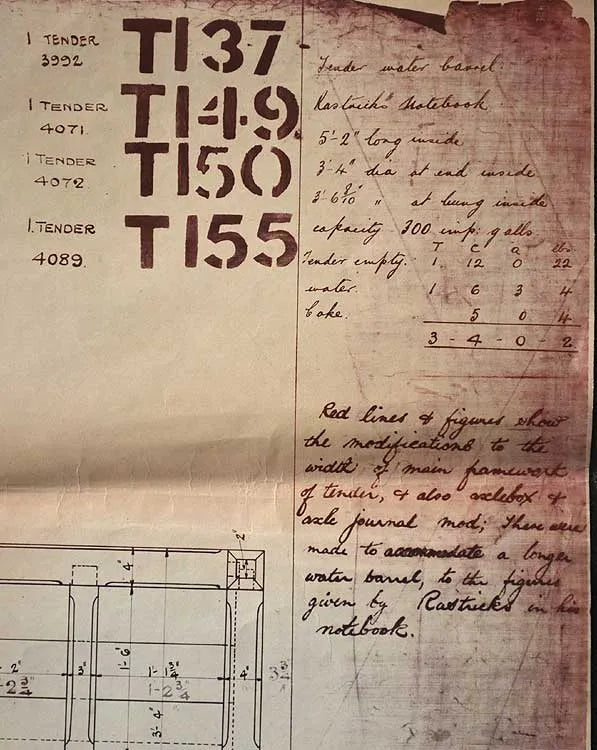 1 TENDER
3992
T137
1 TENDER
4071.
T149
1 TENDER
4072
T150
1. TENDER
4089.
T155
Tender water barrel.
Rastricks Notebook
5'-2" long inside
3'-4" dia at end inside
3'-6 8/10 " at bung inside
capacity 300 imp: galls
T C Q lbs
Tender empty. 1. 12 0 22
water. 1 6 3 4
Coke. 5 0 4
3 - 4 - 0 - 2
Red lines & figures show
the modifications to the
width of main framework
of tender, & also axlebox &
axle journal mod; These were
made to accommodate a longer
water barrel, to the figures
given by Rastricks in his
notebook.
2"
4"
2"
2 3/4"
3"
1'-6"
1'-1 3/4"
1-2 3/4"
4"
3 3/4"
3'-4"